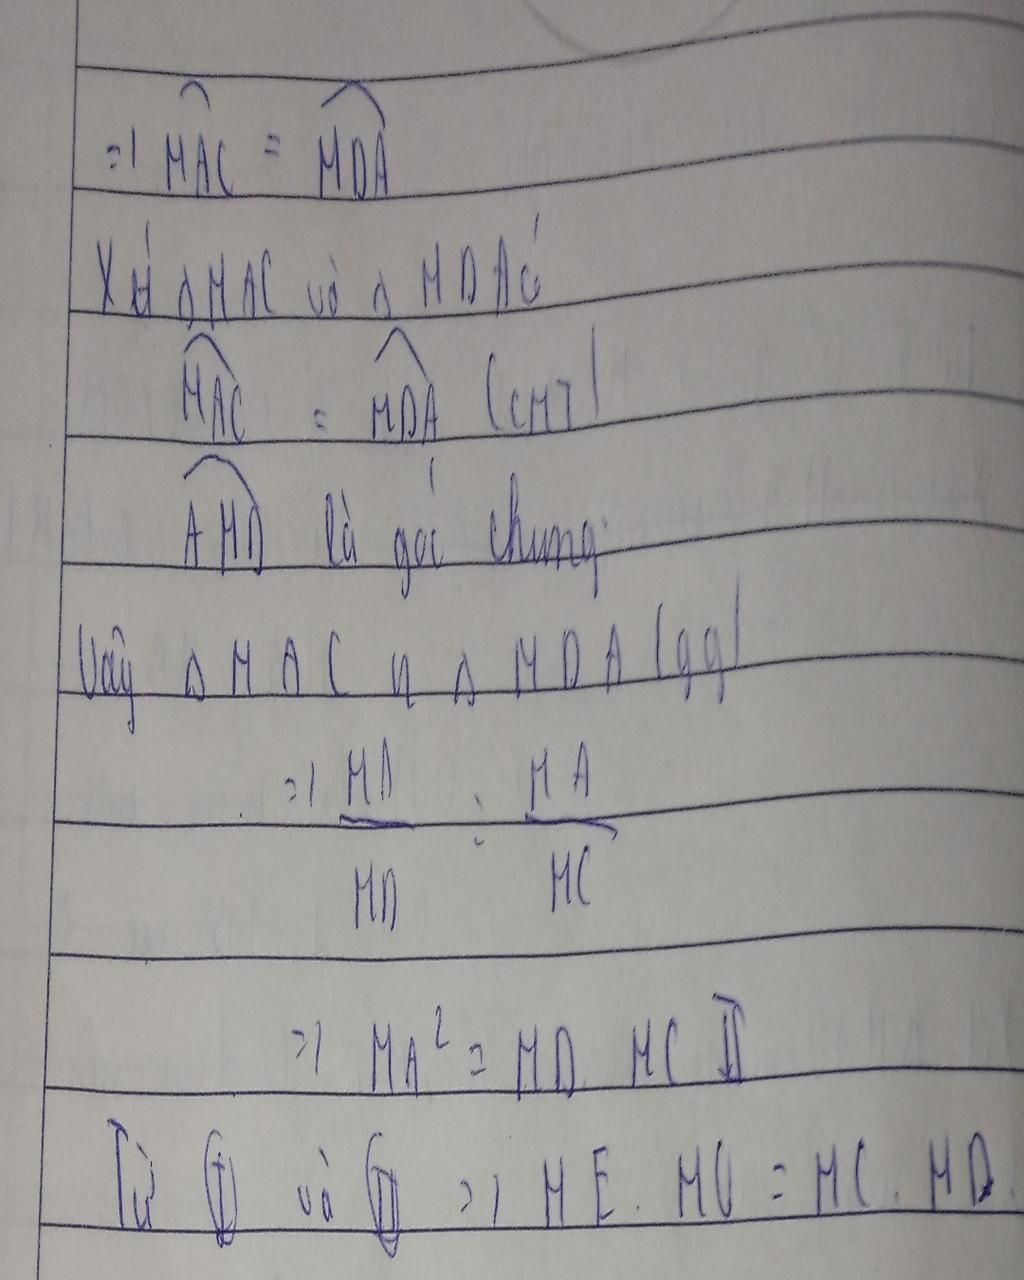 => MAC = MDA
Xét ΔMAC và Δ MDA có
MAC = MDA (CMT)
AMD là góc chung.
Vậy Δ MAC ᔕ Δ MDA (gg)
=> MD/MD = MA/MC
=> MA² = MD MC II
Từ I và II => ME. MO = MC. MD.